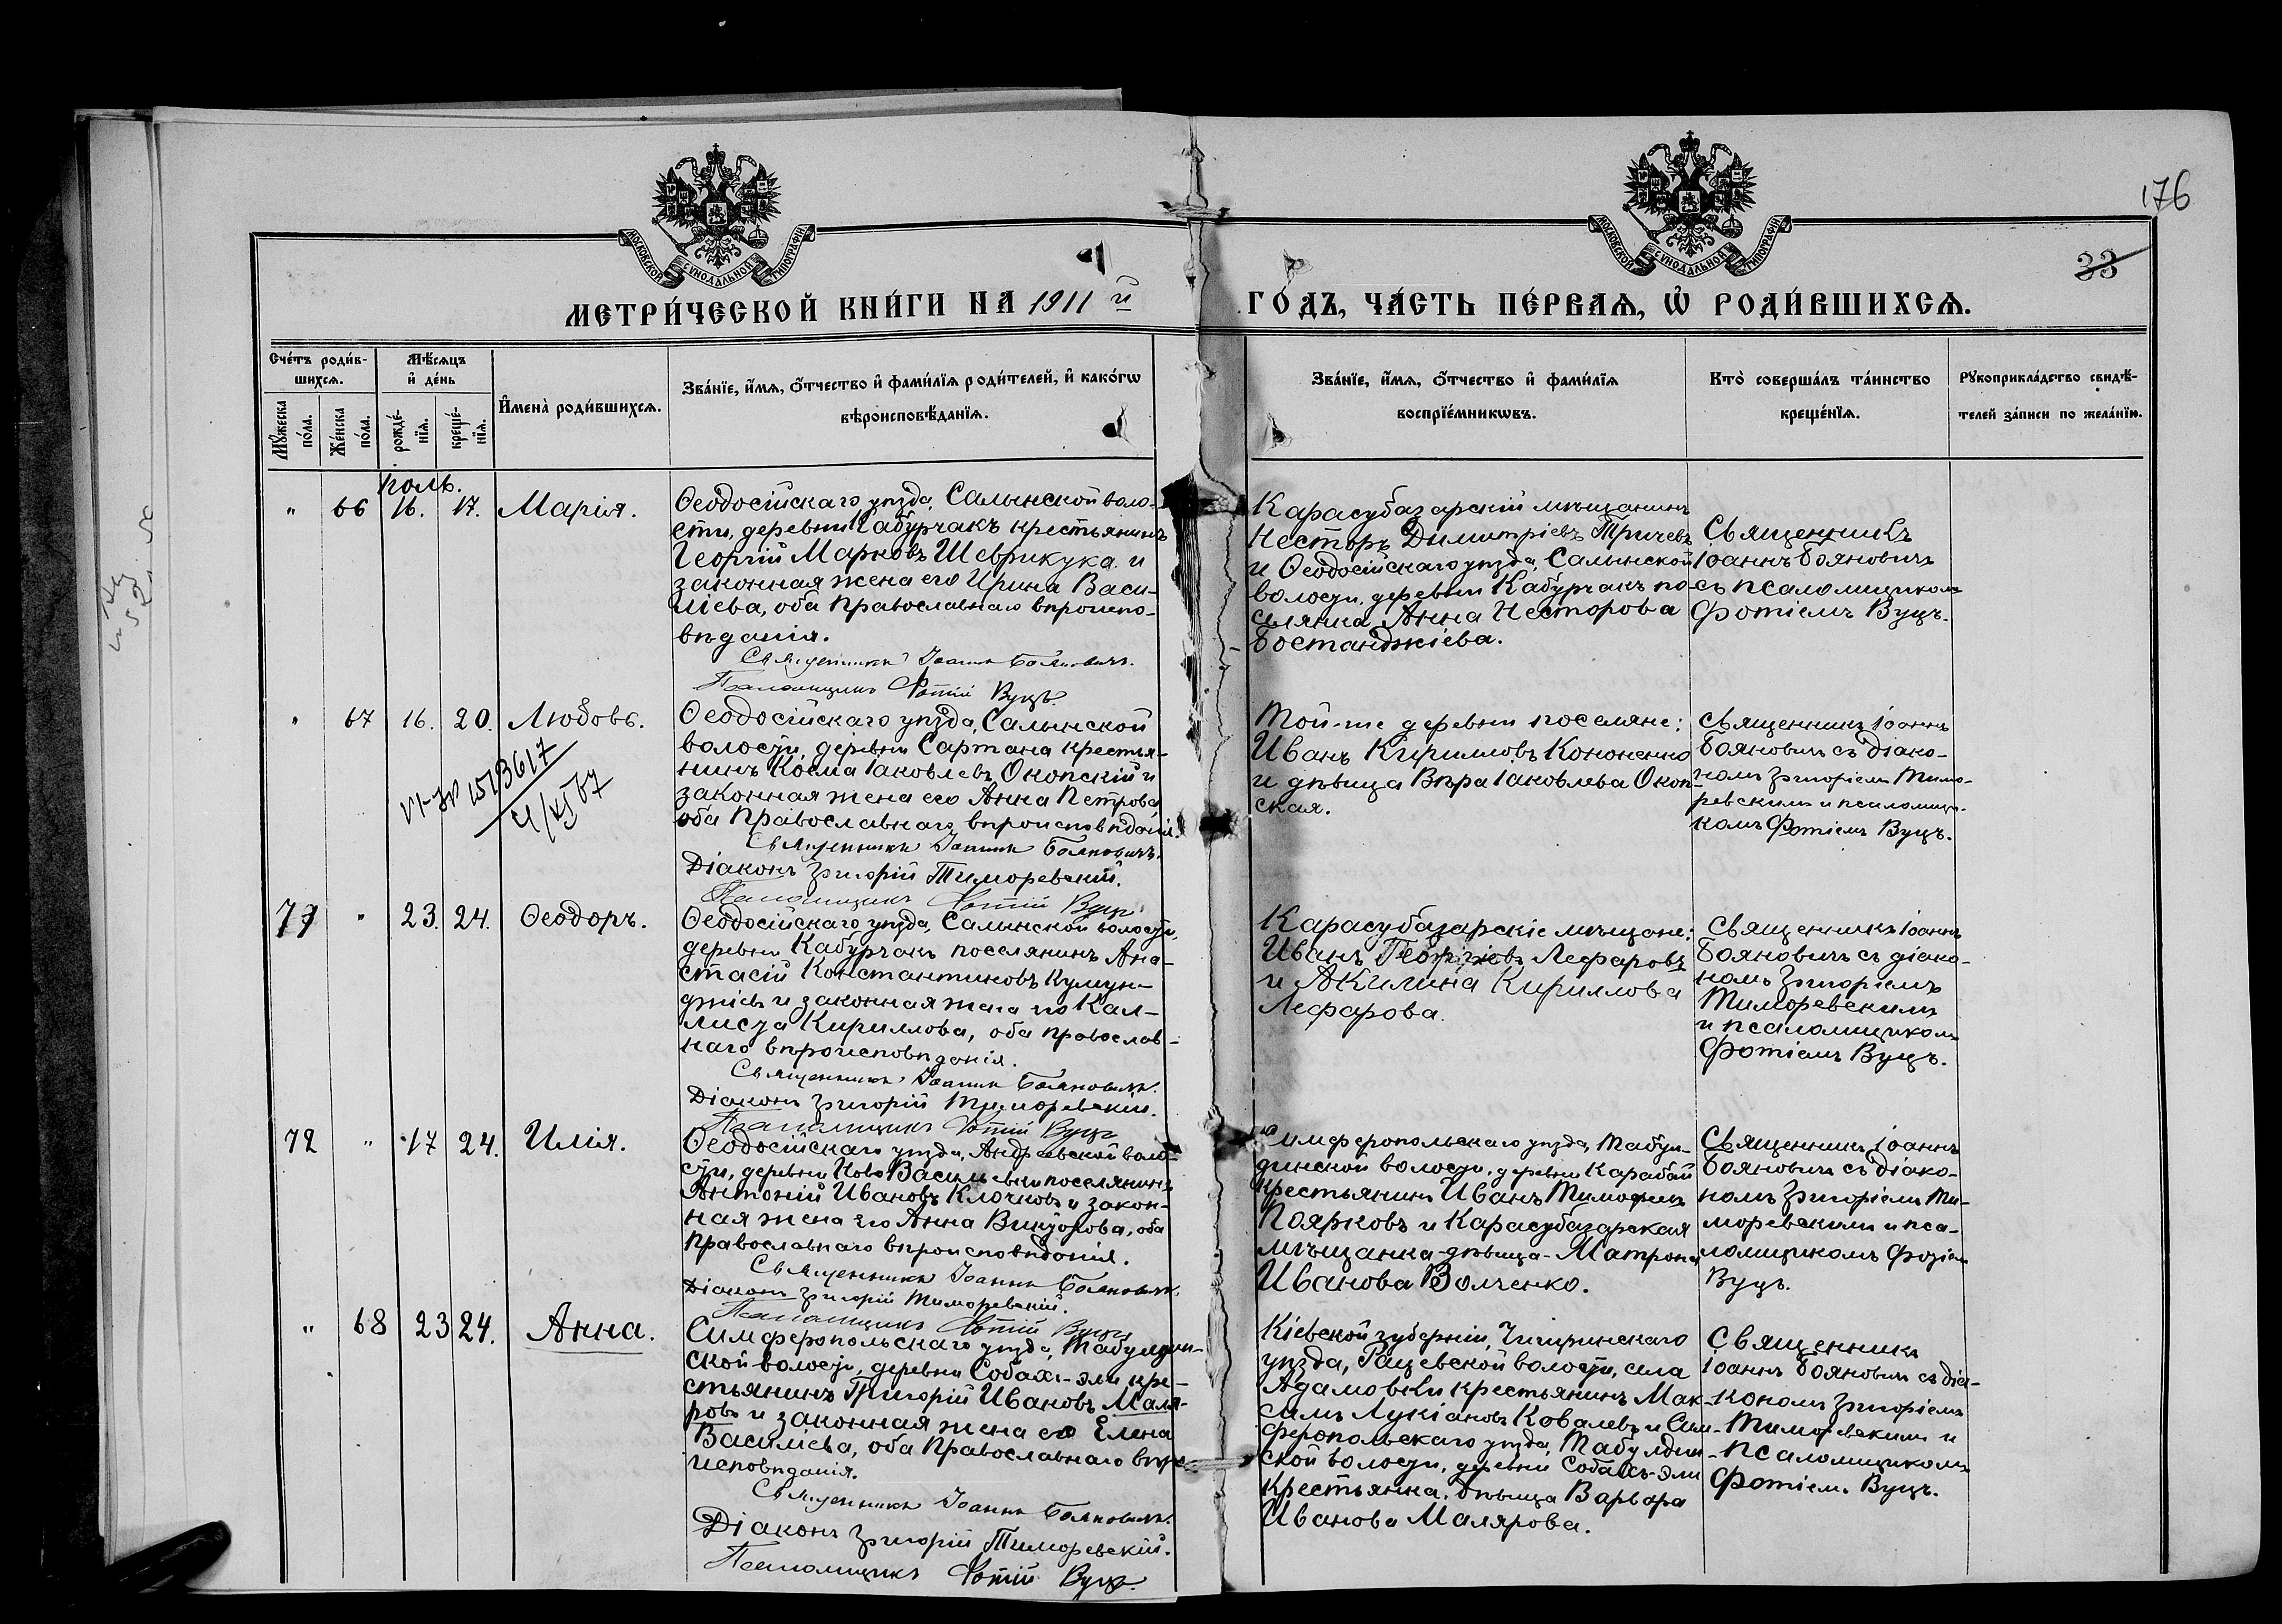 176
33
МОСКОВСКОЙ СѴНОДАЛЬНОЙ ТИПОГРАФІИ
МОСКОВСКОЙ СѴНОДАЛЬНОЙ ТИПОГРАФІИ
МЕТРИ́ЧЕСКОЙ КНИ́ГИ НА 1911 й ГО́ДЪ, ЧА́СТЬ ПЕ́РВАѦ, Ѡ҆ РОДИ́ВШИХСѦ.
Сче́тъ роди́в-
шихсѧ.
Мꙋ́жеска
по́ла.
Же́нска
по́ла.
Мѣ́сѧцъ
и҆ де́нь
рожде́-
нїѧ.
креще́-
нїѧ.
И҆мена̀ роди́вшихсѧ.
Зва́нїе, и҆́мѧ, ѻ҆́тчество и҆ фами́лїѧ роди́телей, и҆ како́гѡ
вѣроисповѣ́данїѧ.
Зва́нїе, и҆́мѧ, ѻ҆́тчество и҆ фами́лїѧ
воспрїе́мникѡвъ.
Кто̀ соверша́лъ та́инство
креще́нїѧ.
Рꙋкоприкла́дство свидѣ́-
телей за́писи по жела́нїю.
Іюль.
" 66 16. 17. Марія.
Ѳеодосійскаго уѣзда, Салынской воло-
сти, деревни Кабурчакъ крестьянинъ
Георгій Марковъ Шеврикука и
законная жена его Ирина Васи-
ліева, оба Православнаго вѣроиспо-
вѣданія.
Священникъ Іоаннъ Бояновичъ.
Псаломщикъ Фотій Вуцъ.
Карасубазарскій мѣщанинъ
Несторъ Димитріевъ Тричевъ
и Ѳеодосійскаго уѣзда, Салынской
волости, деревни Кабурчакъ по-
селянка Анна Несторова
Бостанджіева.
Священникъ
Іоаннъ Бояновичъ
съ псаломщикомъ
Фотіемъ Вуцъ.
" 67 16. 20. Любовь.
Ѳеодосійскаго уѣзда, Салынской
волости, деревни Сартана крестья-
нинъ Косма Іаковлевъ Окопскій и
законная жена его Анна Петрова,
оба Православнаго вѣроисповѣданія.
Священникъ Іоаннъ Бояновичъ.
Діаконъ Григорій Тиморевскій.
Псаломщикъ Фотій Вуцъ
Той-же деревни поселяне:
Иванъ Кирилловъ Кононенко
и дѣвица Вѣра Іаковлева Окоп-
ская.
Священникъ Іоаннъ
Бояновичъ съ діако-
номъ Григоріемъ Тимо-
ревскимъ и псаломщи-
комъ Фотіемъ Вуцъ.
71 " 23. 24. Ѳеодоръ.
Ѳеодосійскаго уѣзда, Салынской волости,
деревни Кабурчакъ поселянинъ Ана-
стасій Константиновъ Куюун-
джіевъ и законная жена его Кал-
листа Кириллова, оба православ-
наго вѣроисповѣданія.
Священникъ Іоаннъ Бояновичъ.
Діаконъ Григорій Тиморевскій.
Псаломщикъ Фотій Вуцъ
Карасубазарскіе мѣщане:
Иванъ Георгіевъ Лефаровъ
и Акилина Кириллова
Лефарова.
Священникъ Іоаннъ
Бояновичъ съ діако-
номъ Григоріемъ
Тиморевскимъ
и псаломщикомъ
Фотіемъ Вуцъ.
72 " 17 24. Илія.
Ѳеодосійскаго уѣзда, Андреевской воло-
сти, деревни Ново Васильевки поселянинъ
Антоній Ивановъ Клочковъ и закон-
ная жена его Анна Викторова, оба
Православнаго вѣроисповѣданія.
Священникъ Іоаннъ Бояновичъ.
Діаконъ Григорій Тиморевскій.
Псаломщикъ Фотій Вуцъ
Симферопольскаго уѣзда, Табул-
динской волости, деревни Карабай
крестьянинъ Иванъ Тимофеевъ
Поярковъ и Карасубазарская
мѣщанка-дѣвица-Матрона
Иванова Волченко.
Священникъ Іоаннъ
Бояновичъ съ діако-
номъ Григоріемъ Ти-
моревскимъ и пса-
ломщикомъ Фотіемъ
Вуцъ.
" 68 23 24. Анна.
Симферопольскаго уѣзда, Табулдин-
ской волости, деревни Собахъ-эли кре-
стьянинъ Григорій Ивановъ Маля-
ровъ и законная жена его Елена
Василіева, оба Православнаго вѣро-
исповѣданія.
Священникъ Іоаннъ Бояновичъ.
Діаконъ Григорій Тиморевскій.
Псаломщикъ Фотій Вуцъ.
Кіевской губерніи, Чигиринскаго
уѣзда, Рацевской волости, села
Адамовки крестьянинъ Мак-
симъ Лукіановъ Ковалевъ и Сим-
феропольскаго уѣзда, Табулдин-
ской волости, деревни Собахъ-эли
крестьянка, дѣвица Варвара
Иванова Малярова.
Священникъ
Іоаннъ Бояновичъ съ діа-
кономъ Григоріемъ
Тиморевскимъ и
псаломщикомъ
Фотіемъ Вуцъ.